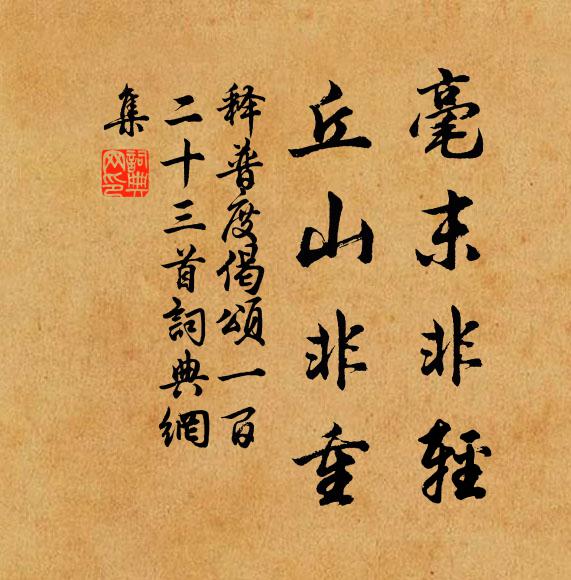 毫末非輕
丘山非重
释普度偈頌一百
二十三首詞典網
集
詞典網印